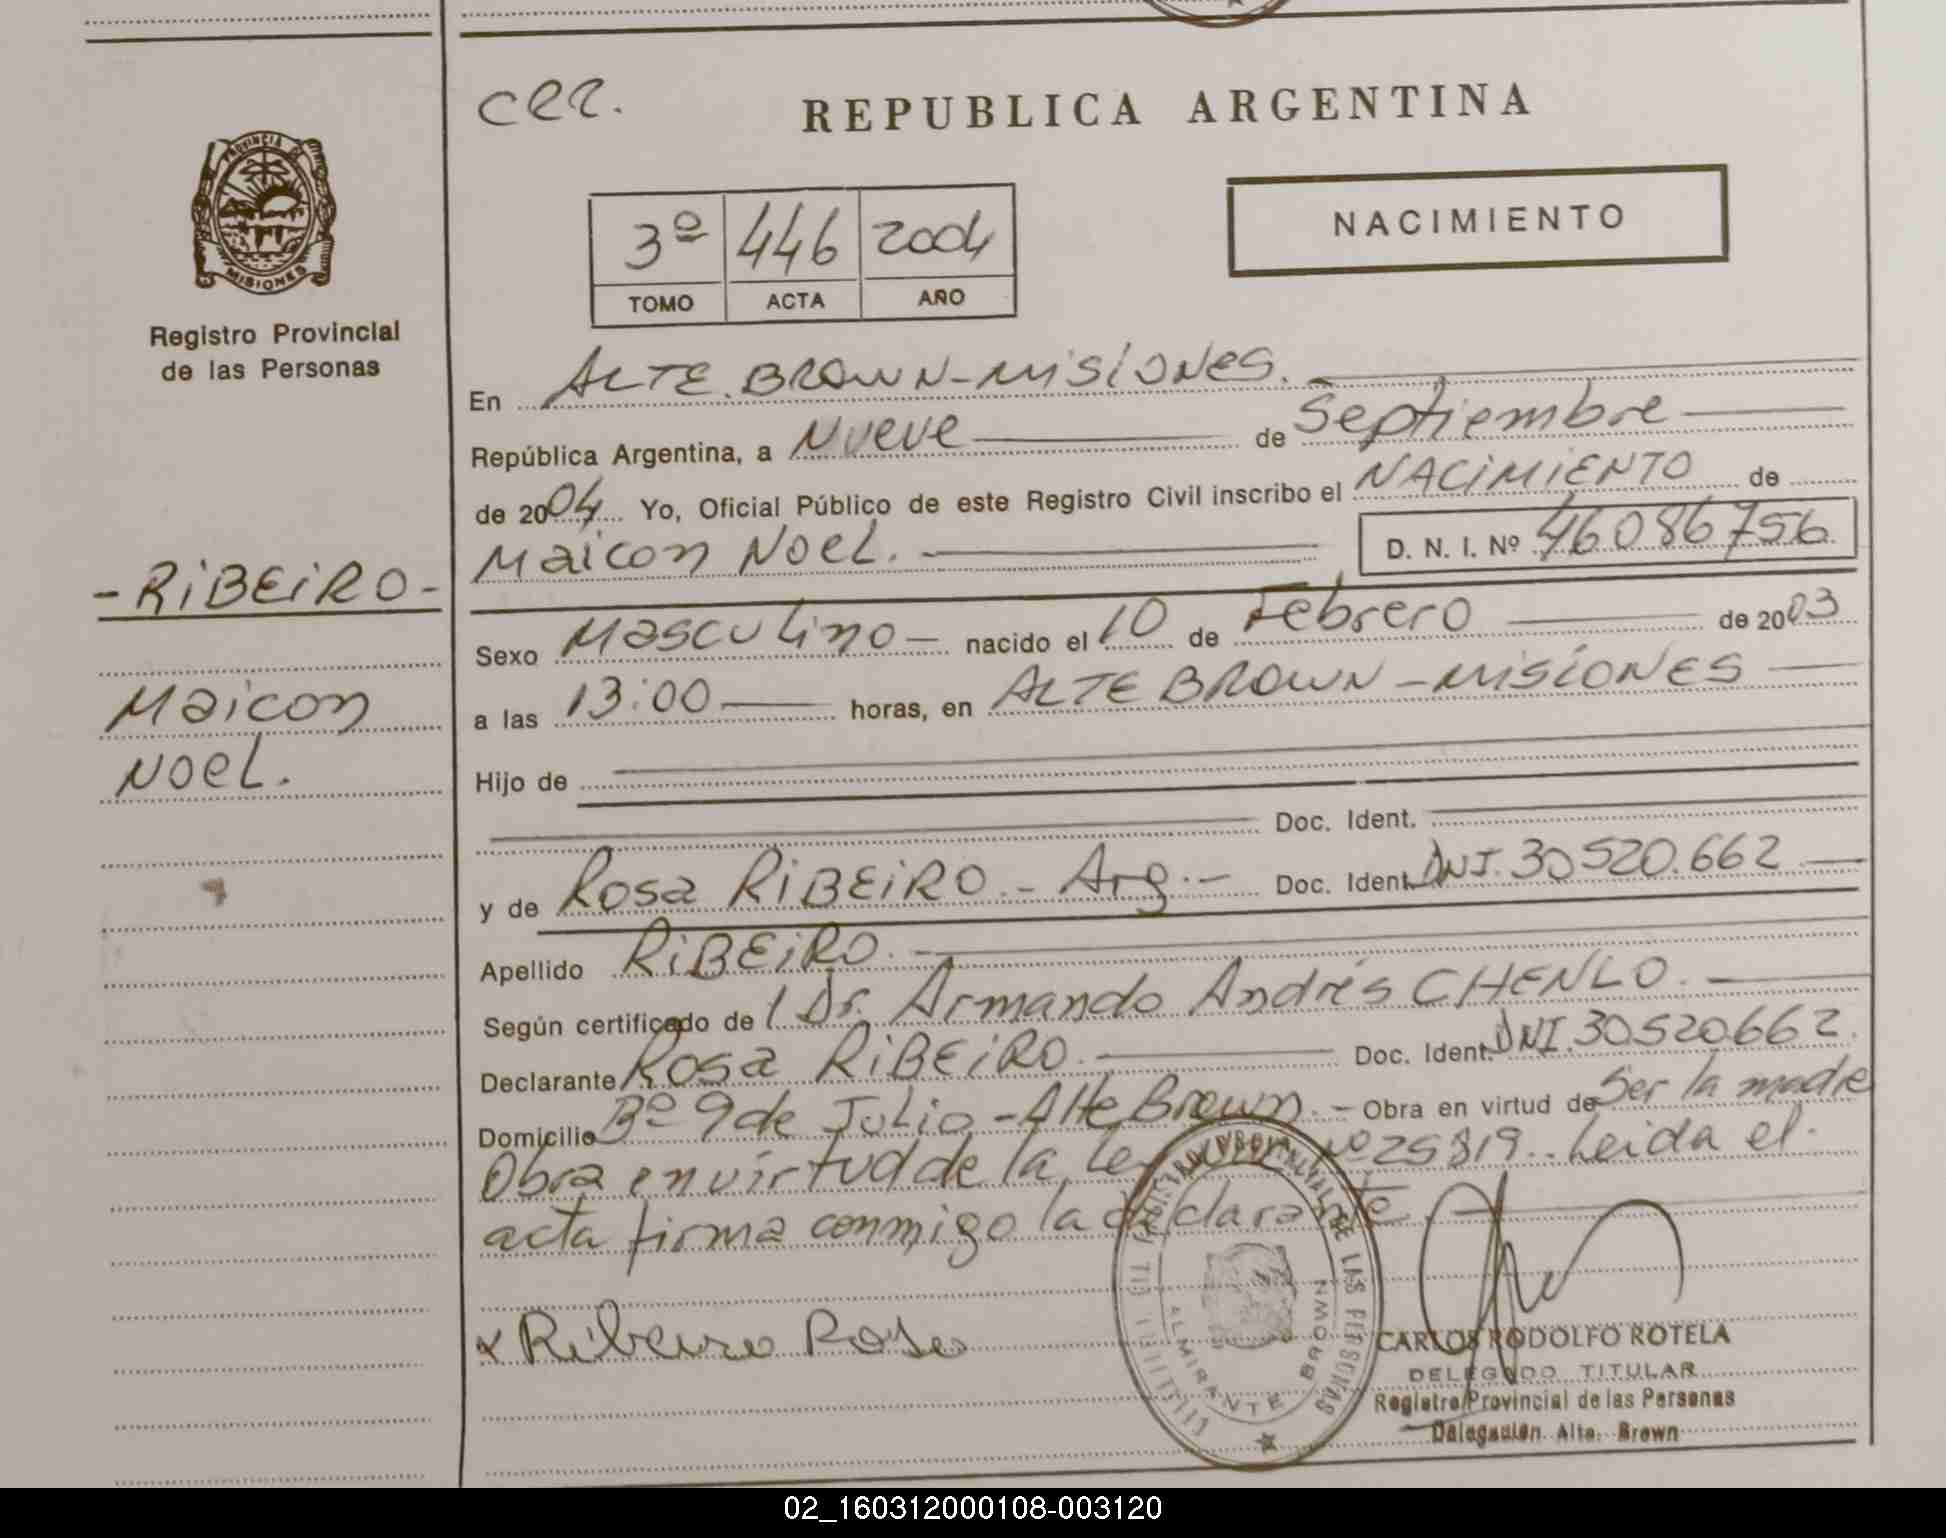 REPUBLICA ARGENTINA
PROVINCIA DE
MISIONES
Registro Provincial
de las Personas
3º 446 2004
TOMO ACTA AÑO
NACIMIENTO
En ALTE. BROWN-MISIONES.
República Argentina, a Nueve de Septiembre
de 2004 Yo, Oficial Público de este Registro Civil inscribo el NACIMIENTO de
Maicon Noel. D. N. I. Nº 46086756
-RIBEIRO-
Maicon
Noel.
Sexo Masculino nacido el 10 de Febrero de 2003
a las 13:00 horas, en ALTE BROWN-MISIONES
Hijo de
Doc. Ident.
y de Rosa RIBEIRO.- Arg.- Doc. Ident. DNI. 30520.662
Apellido RIBEIRO.
Según certificado de l Dr. Armando Andrés CHENLO.
Declarante Rosa RIBEIRO. Doc. Ident. DNI. 30520662.
Domicilio Bº 9 de Julio-Alte Brown.- Obra en virtud de Ser la madre
Obra en virtud de la Ley Nº 25819.. Leida el
acta firma conmigo la declarante
x Ribeiro Rosa
DE LAS PERSONAS
ALMIRANTE BROWN
CARLOS RODOLFO ROTELA
DELEGADO TITULAR
Registro Provincial de las Personas
Delegación Alte. Brown
02_160312000108-003120